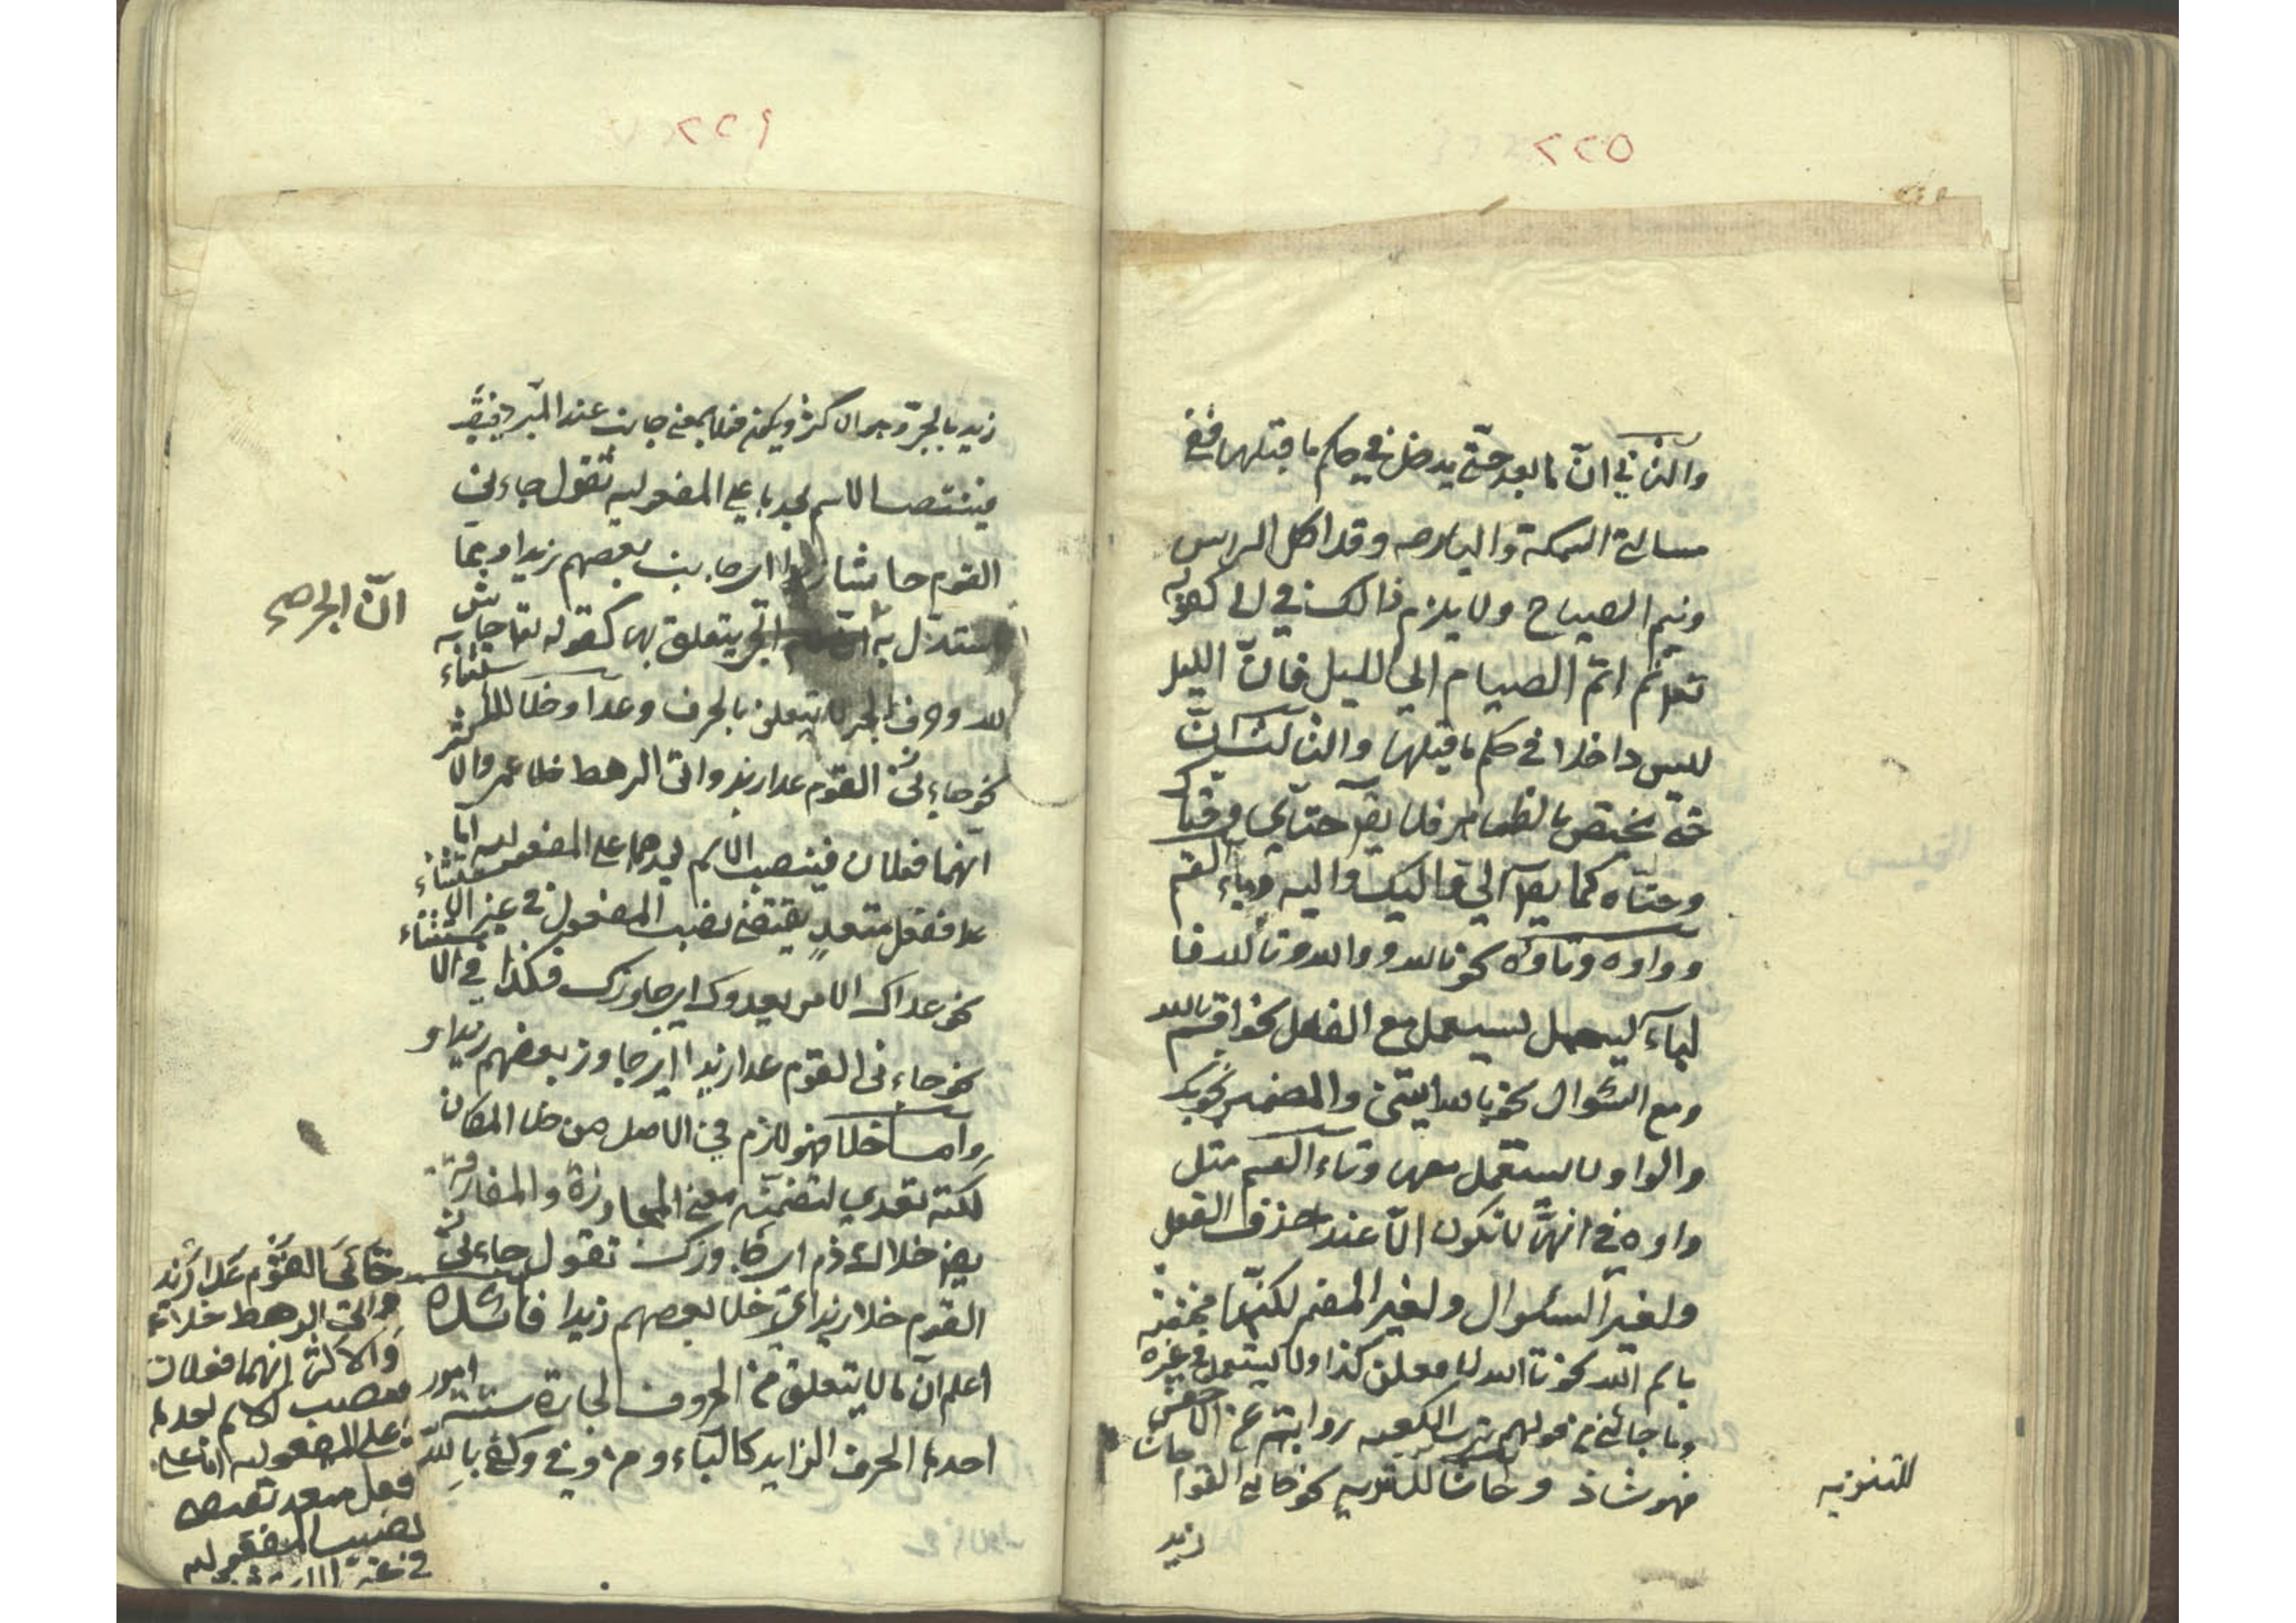 ٢٢٥
والثاني انّ ما بعد حتّى يدخل في حكم ما قبلها ففي
مسالة السمكة والبارحه وقد اكل الراس
ونيم الصباح ولا يلزم ذالك في الى كقوله
تعا ثم اتم الصيام الي الليل فانّ الليل
ليس داخلا في حكم ما قبلها والثالث انّ
حتى يختص بالظاهر فلا يقا حتاي
وحتاه كما يقا الي واليك واليه وباء القسم
وواوه وتاوه نحو بالله ووالله وتالله فا
لباء يستعمل مع الفعل نحو اقسم بالله
ومع السّوال نحو بالله ايتنى والمضمر نحو بك
والواو لا يستعمل معها وتاء القسم مثل
واوه في انهّا لا تكون الّا عند حذف الفعل
ولغير السئوال ولغير المضمر لكنّها مختصة
باسم الله نحو تالله لا فعلن كذا ولا يستعمل في غيره
وما جائني من قولهم ترب الكعبه روايتم عن الاخفش
فهو شاذ وحاشا للتنزيه نحو جائني القوا حاشا
زيد
للتنزيه
٢٢٦
زيد بالجرّ وبها ان كثر ويكون فعلا بمعنى جانب عند المبرد
فينتصب الاسم بعدها على المفعوليه تقول جاءنى
القوم حاشا زيدا اى جانب بعضهم زيدا وبما
استدلّ به انّ الجر يتعلق بها كقوله تعا حاش
لله وحرف الجر لا يتعلق بالحرف وعدا وخلا للاستثناء
نحو جاءنى القوم عدا زيد واتى الرهط خلا عمرو والاكثر
انّهما فعلان فينتصب الاسم بعدهما على المفعوليه امّا
عدا ففعل متعدٍ يقتضى نصب المفعول فى غير الاستثناء
نحو عداك الامر يعدوك اى جاوزك فكذا في الاستثناء
نحو جاءنى القوم عدا زيدا اى جاوز بعضهم زيدا و
وامـا خلا فهو لازم في الاصل من خلا المكان
لكنّه تعدي لتضمّنه معنى المجاوزة والمفارقة
يقا خلاك ذم اى جاوزك تقول جاءنى
القوم خلا زيدا اى خلا بعضهم زيدا فائده
اعلم انّ ما لا يتعلق من الحروف الجارة ستة امور
احدها الحرف الزايد كالباء و من وفي وكفى بالله
انّ الجر
جائنى القوم عدا زيد
واتى الرهط خلا
والاكثر انهما فعلان
فينصب الاسم بعدها
على المفعوليه اما عدا
فعل متعد تقتضى
نصب المفعوليه
في غير الاستثناء